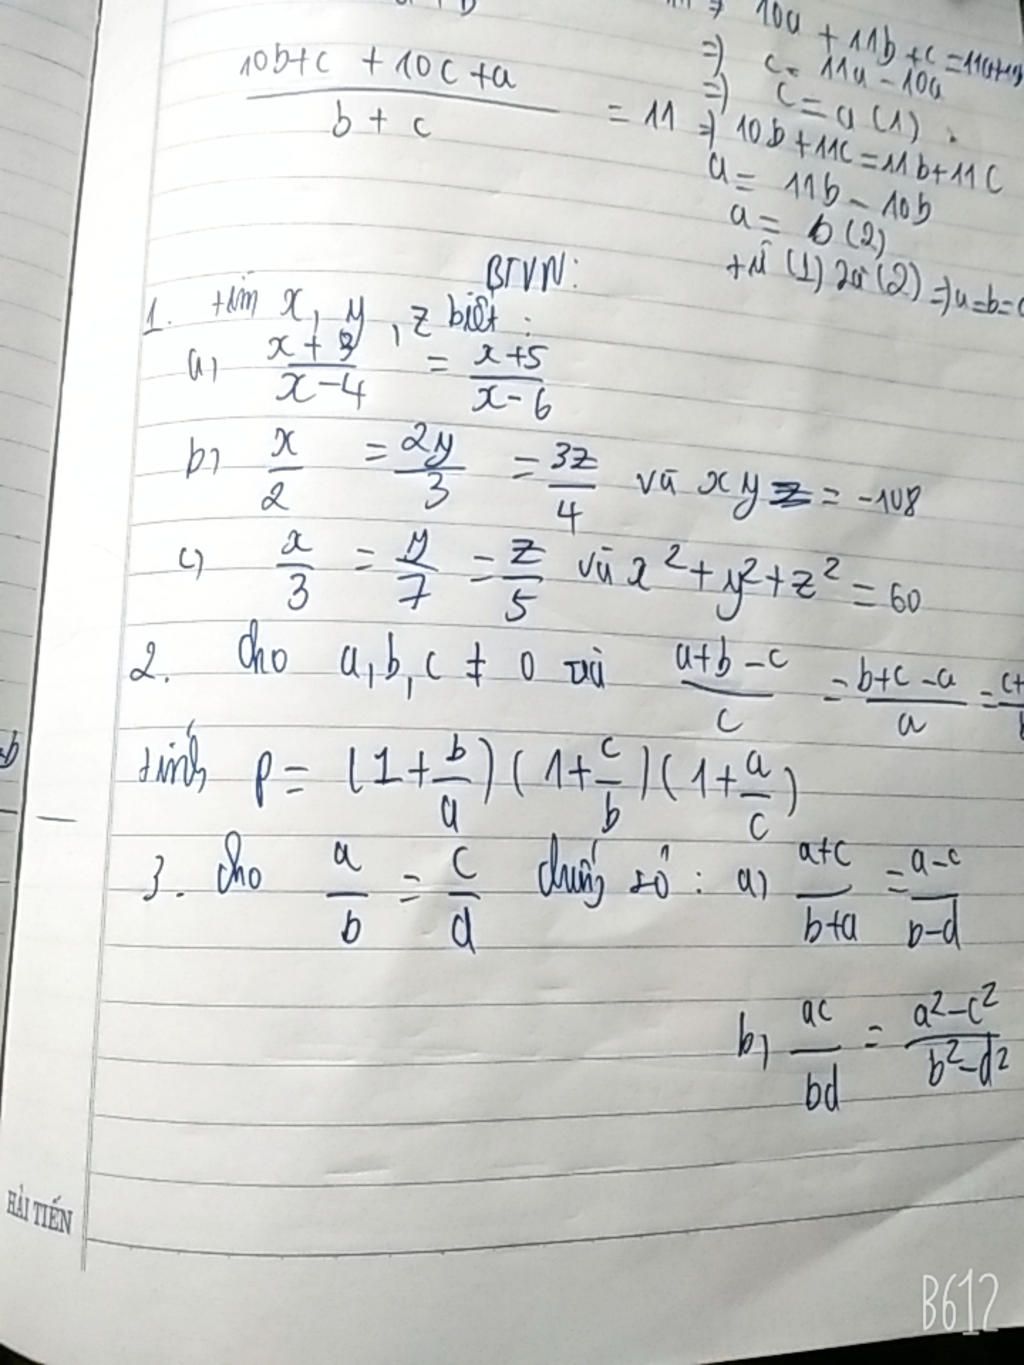 10a + 11b + c = 11a+11b
10b+c + 10c+a / b + c = 11
=> c = 11a - 10a
=> c = a (1)
=> 10b + 11c = 11b + 11c
a = 11b - 10b
a = b (2)
từ (1) và (2) => a=b=c
BTVN:
1. tìm x, y, z biết :
a) x+3 / x-4 = x+5 / x-6
b) x/2 = 2y/3 = 3z/4 và xyz = -108
c) x/3 = y/7 = z/5 và x² + y² + z² = 60
2. Cho a, b, c ≠ 0 và a+b-c / c = b+c-a / a = c+
tính P = (1 + b/a) (1 + c/b) (1 + a/c)
3. Cho a/b = c/d chứng tỏ : a) a+c / b+d = a-c / b-d
b) ac / bd = a²-c² / b²-d²
HẢI TIẾN
B612